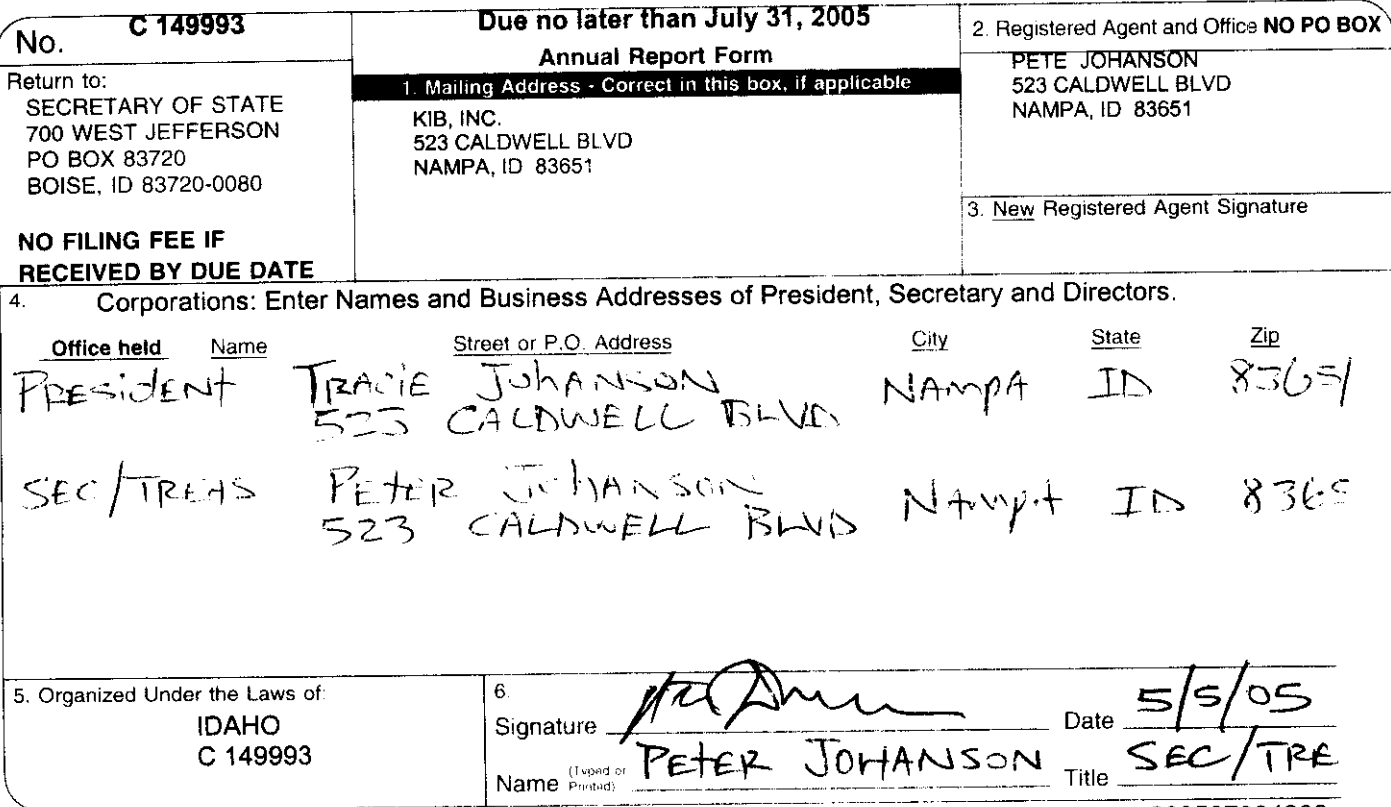 No. C 149993
Return to:
SECRETARY OF STATE
700 WEST JEFFERSON
PO BOX 83720
BOISE, ID 83720-0080
NO FILING FEE IF
RECEIVED BY DUE DATE
Due no later than July 31, 2005
Annual Report Form
1. Mailing Address - Correct in this box, if applicable
KIB, INC.
523 CALDWELL BLVD
NAMPA, ID 83651
2. Registered Agent and Office NO PO BOX
PETE JOHANSON
523 CALDWELL BLVD
NAMPA, ID 83651
3. New Registered Agent Signature
4. Corporations: Enter Names and Business Addresses of President, Secretary and Directors.
Office held Name Street or P.O. Address City State Zip
PRESidENT TRACiE JohANSON NAmpA ID 83651
523 CALDWELL BLVD
SEC/TREAS PEtER JohANSON NAmpA ID 8365
523 CALDWELL BLVD
5. Organized Under the Laws of:
IDAHO
C 149993
6.
Signature Date 5/5/05
Name (Typed or Printed) PEtER JOHANSON Title SEC/TRE